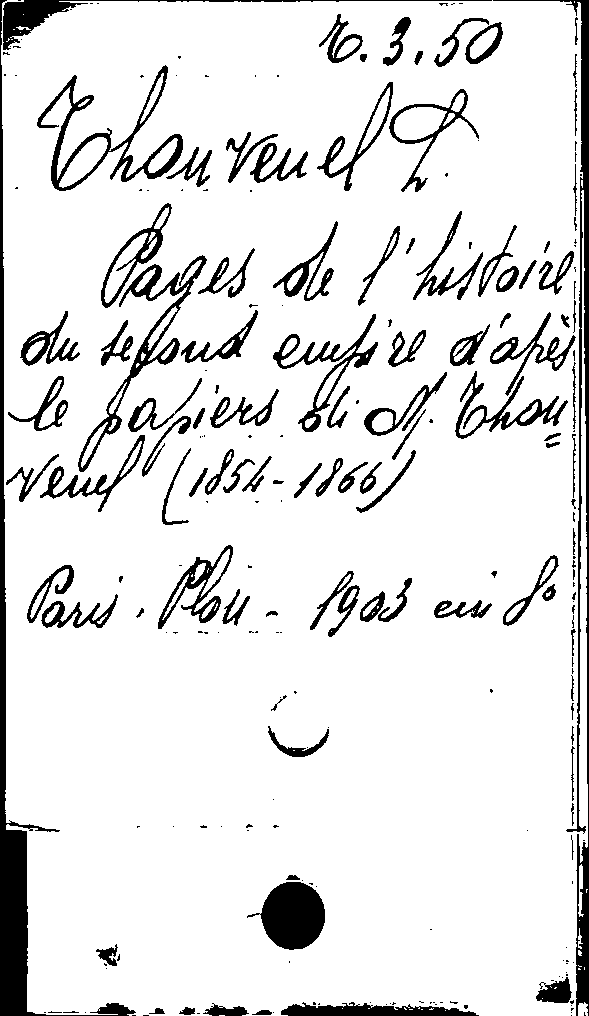 T.3.50
Thouvenel L.
Pages de l'histoire
du second empire d'après
le papiers de M. Thou=
venel (1854-1866)
Paris. Plon - 1903 ein 8°